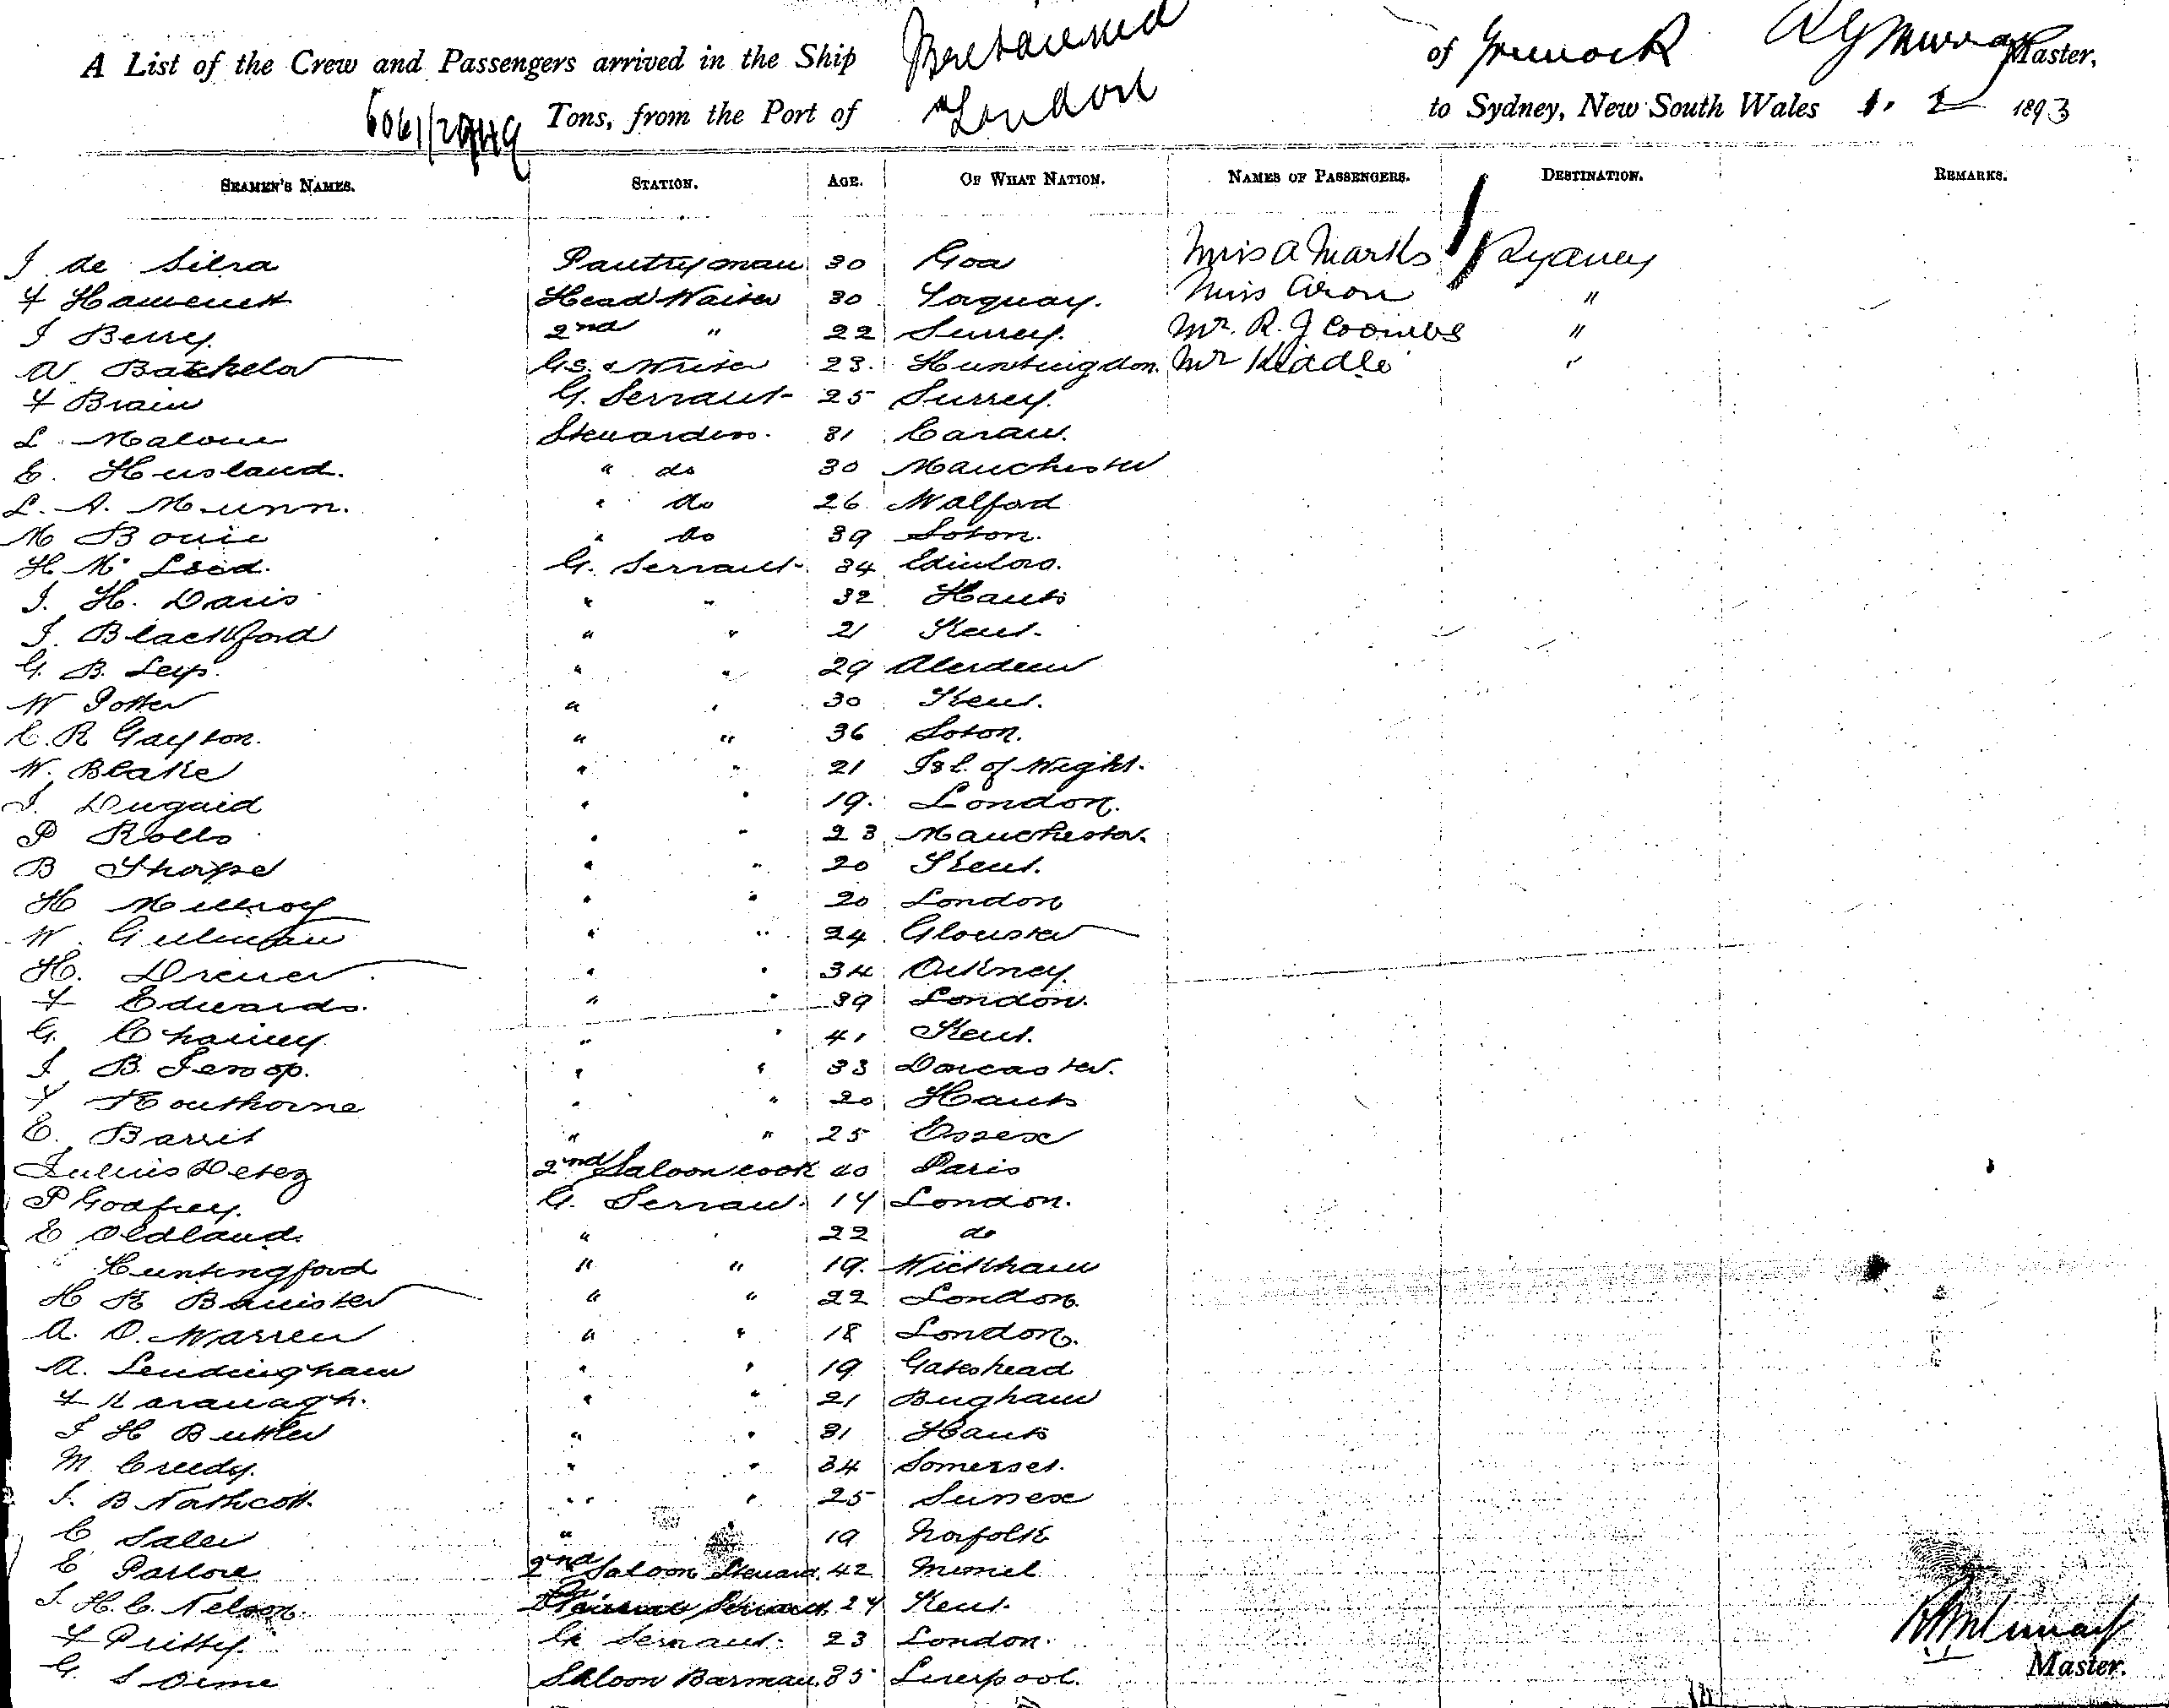 A List of the Crew and Passengers arrived in the Ship Britannia of Greenock Master,
Tons, from the Port of London to Sydney, New South Wales 1893
SEAMEN'S NAMES. STATION. AGE. OF WHAT NATION. NAMES OF PASSENGERS. DESTINATION. REMARKS.
J de Silva Pantryman 30 Goa Miss A Marks Sydney
F Head Waiter 30 Torquay. Miss Aron "
J Berry. 2nd " 22 Surrey. Mr. R. J Coombs "
W. Batchelor G.S. & Writer 23. Huntingdon. Mr Kiddle "
F Brain G. Servant 25 Surrey.
L. Malone Stewardess. 31
E. Husland. " do 30 Manchester
L. A. Munn. " do 26 Walford
M Bouie " do 39 Soton.
H Mc Leod. G. Servant 34 Edinboro.
J. H. Davis " " 32 Hants
J. Blackford " " 21 Kent.
G. B. Leys. " " 29 Aberdeen
W Potter " " 30 Kent.
C. R Gayton. " " 36 Soton.
W. Blake " " 21 Isl. of Wight.
J. Duguid " " 19. London.
P Rollo " " 23 Manchester.
B Thorpe " " 20 Kent.
H Millroy " " 20 London
W. Gillman " " 24 Glouster
H. Drever " " 34 Orkney.
F Edwards. " " 39 London.
G. Chainey " " 41 Kent.
J B. Jessop. " " 33 Doncaster.
F Houthorne " " 20 Hants
E. Barrit " " 25 Essex
Julius Detez 2nd Saloon cook 40 Paris
P Godfrey. G. Servant. 17 London.
E Oldland. " " 22 do
" Huntingford " " 19. Wickham
H R Banister " " 22 London.
A. O. Warren " " 18 London.
A. Lendingham " " 19 Gateshead
F Kavanagh. " " 21 Bugham
J H Buttler " " 31 Hants
M. Creedy. " " 34 Somerset.
J. B Nathcott. " " 25 Sussex
C Saler " 19 Norfolk
E Parlore 2nd Saloon Steward. 42 Memel
J. H. C. Nelson. 27 Kent.
F Pritty. G Servant. 23 London.
G. S Orme Saloon Barman. 35 Liverpool.
Master.